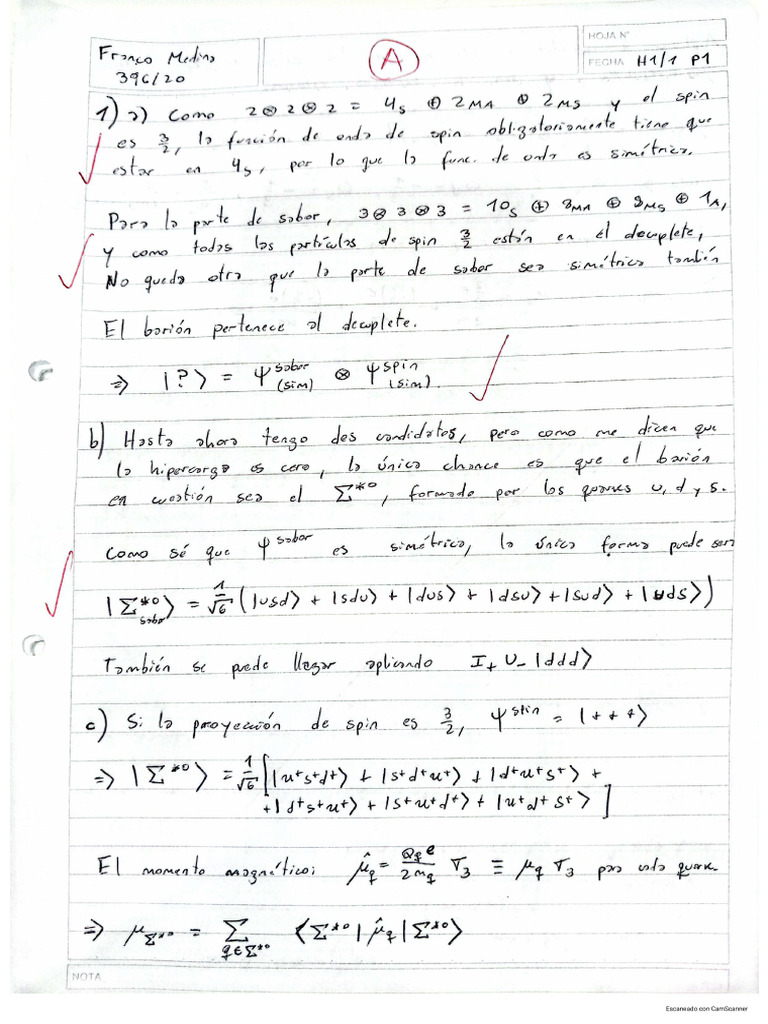 Franco Medina
396/20
A
HOJA N°
FECHA H1/1 P1
1) a) Como 2⊗2⊗2 = 4s ⊕ 2MA ⊕ 2MS y el spin
es 3/2, la función de onda de spin obligatoriamente tiene que
estar en 4s, por lo que la func. de onda es simétrica.
Para la parte de sabor, 3⊗3⊗3 = 10s ⊕ 8MA ⊕ 8MS ⊕ 1A,
y como todas las partículas de spin 3/2 están en el decuplete,
No queda otra que la parte de sabor sea simétrica también
El barión pertenece al decuplete.
⇒ |?⟩ = Ψ^sabor (sim) ⊗ Ψ^spin (sim).
b) Hasta ahora tengo dos candidatos, pero como me dicen que
la hipercarga es cero, la única chance es que el barión
en cuestión sea el Σ*⁰, formado por los quarks u, d y s.
Como sé que Ψ^sabor es simétrica, la única forma puede ser:
|Σ*⁰ sabor⟩ = 1/√6 (|usd⟩ + |sdu⟩ + |dus⟩ + |dsu⟩ + |sud⟩ + |uds⟩)
También se puede llegar aplicando I₊ U₋ |ddd⟩
c) Si la proyección de spin es 3/2, Ψ^spin = |+ + +⟩
⇒ |Σ*⁰⟩ = 1/√6 [|u⁺s⁺d⁺⟩ + |s⁺d⁺u⁺⟩ + |d⁺u⁺s⁺⟩ +
+|d⁺s⁺u⁺⟩ + |s⁺u⁺d⁺⟩ + |u⁺d⁺s⁺⟩]
El momento magnético: μ̂q = Qq e / 2mq σ₃ ≡ μq σ₃ para cada quark.
⇒ μΣ*⁰ = Σ q∈Σ*⁰ ⟨Σ*⁰| μ̂q |Σ*⁰⟩
NOTA
Escaneado con CamScanner